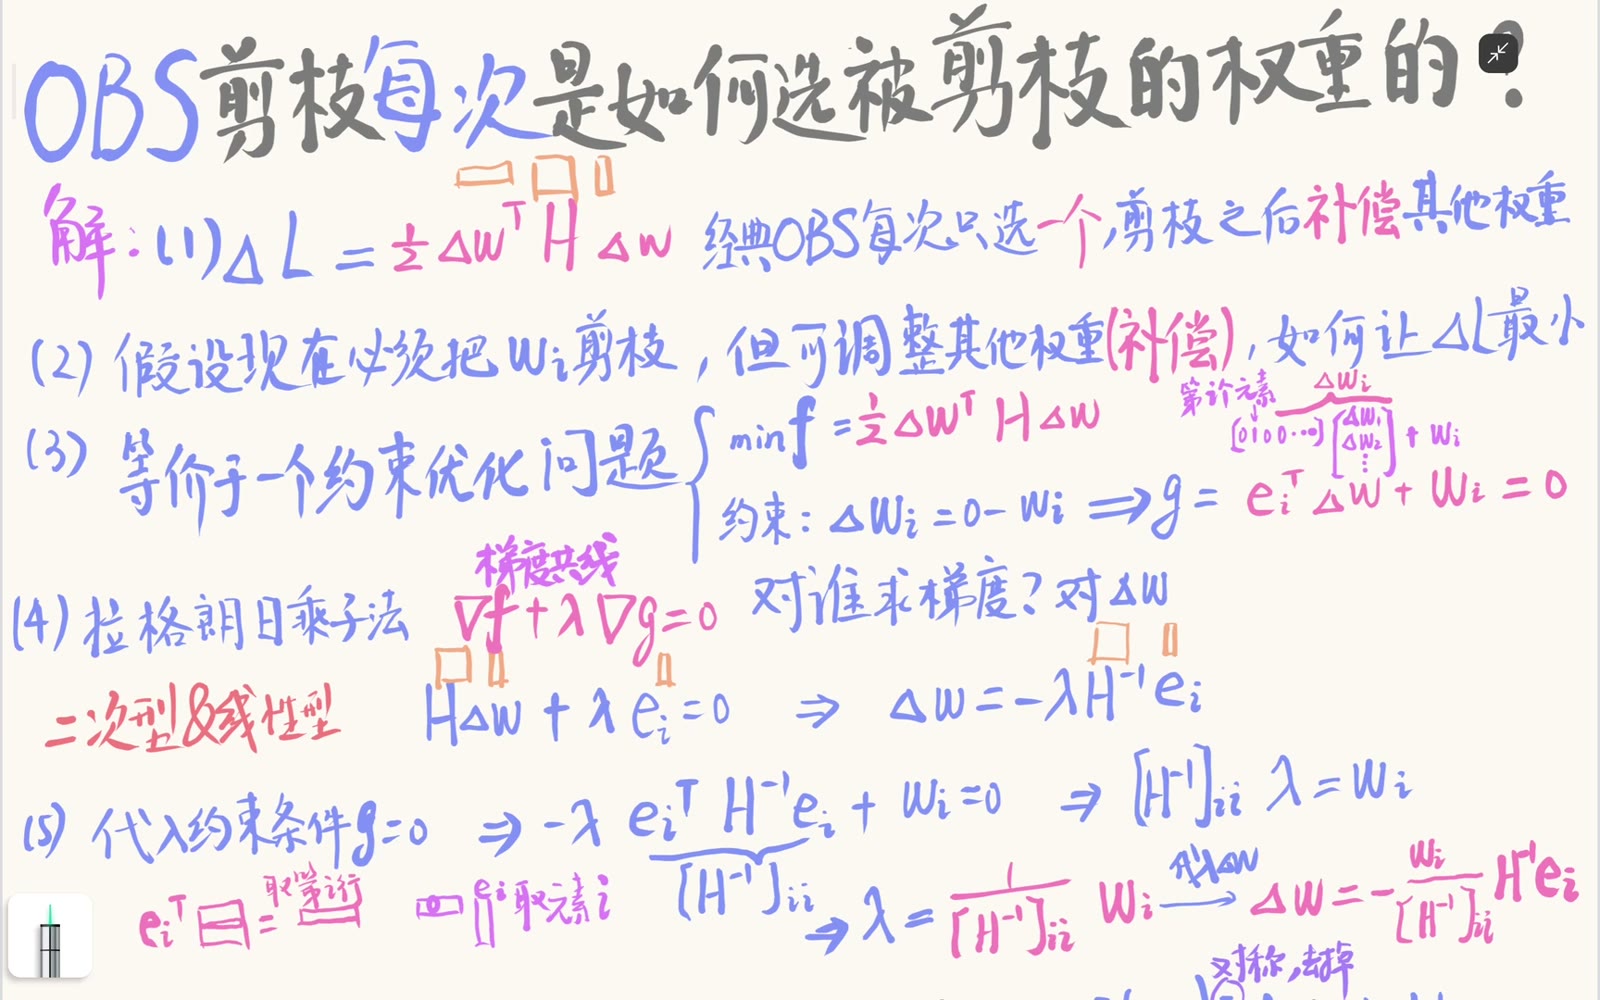 OBS剪枝每次是如何选被剪枝的权重的?
解:(1)ΔL = ½ Δwᵀ H Δw 经典OBS每次只选一个,剪枝之后补偿其他权重
(2) 假设现在必须把Wᵢ剪枝,但可调整其他权重(补偿),如何让ΔL最小
(3) 等价于一个约束优化问题 { min f = ½ Δwᵀ H Δw
第i个元素 Δwᵢ
[0100…] [Δw₁ Δw₂ ⋮] + wᵢ
约束: ΔWᵢ = 0 - wᵢ ⟹ g = eᵢᵀ ΔW + Wᵢ = 0
梯度共线
(4) 拉格朗日乘子法 ∇f + λ∇g = 0 对谁求梯度?对ΔW
二次型&线性型 HΔw + λ eᵢ = 0 ⇒ Δw = -λ H⁻¹ eᵢ
(5) 代入约束条件g=0 ⇒ -λ eᵢᵀ H⁻¹ eᵢ + Wᵢ = 0 ⇒ [H⁻¹]ᵢᵢ λ = Wᵢ
[H⁻¹]ᵢᵢ
eᵢᵀ = 取第i行 eᵢ 取元素i
⇒ λ = 1/[H⁻¹]ᵢᵢ Wᵢ 代入Δw → Δw = - Wᵢ/[H⁻¹]ᵢᵢ H⁻¹eᵢ
对称,去掉